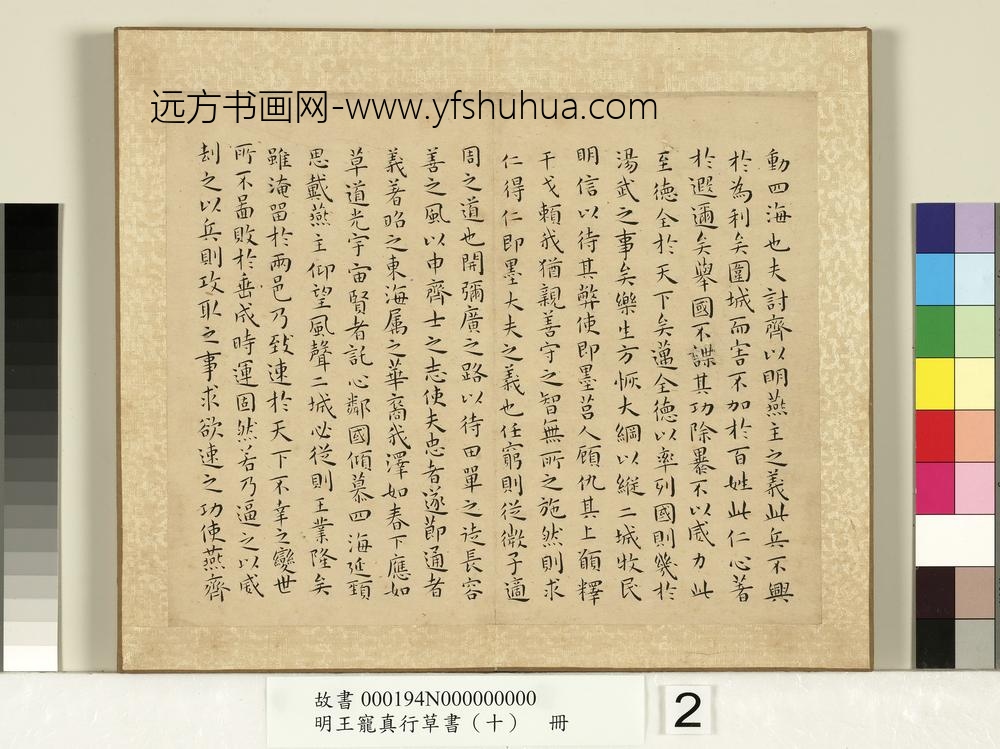 远方书画网-www.yfshuhua.com
動四海也夫討齊以明燕主之義此兵不興
於為利矣圍城而害不加於百姓此仁心著
於遐邇矣舉國不謀其功除暴不以威力此
至德全於天下矣邁全德以率列國則幾於
湯武之事矣樂生方恢大綱以縱二城牧民
明信以待其弊使即墨莒人顧仇其上願釋
干戈賴我猶親善守之智無所之施然則求
仁得仁即墨大夫之義也任窮則從微子適
周之道也開彌廣之路以待田單之徒長容
善之風以申齊士之志使夫忠者遂節通者
義著昭之東海属之華裔我澤如春下應如
草道光宇宙賢者託心鄰國傾慕四海延頸
思戴燕主仰望風聲二城必從則王業隆矣
雖淹留於兩邑乃致速於天下不幸之變世
所不啚敗於垂成時運固然若乃逼之以威
刼之以兵則攻取之事求欲速之功使燕齊
故書 000194N000000000
明王寵真行草書（十） 冊
2